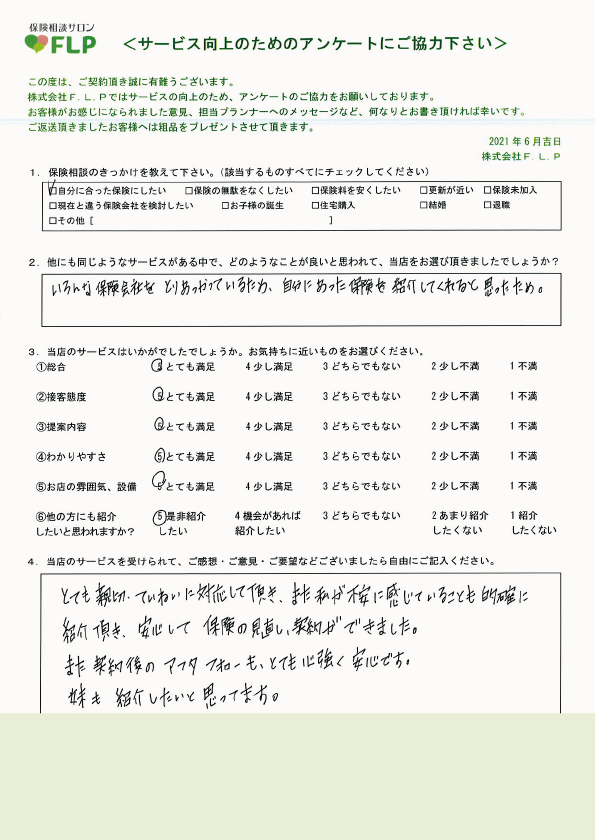 保険相談サロン
FLP
＜サービス向上のためのアンケートにご協力下さい＞
この度は、ご契約頂き誠に有難うございます。
株式会社Ｆ.Ｌ.Ｐではサービスの向上のため、アンケートのご協力をお願いしております。
お客様がお感じになられました意見、担当プランナーへのメッセージなど、何なりとお書き頂ければ幸いです。
ご返送頂きましたお客様へは粗品をプレゼントさせて頂きます。
2021年6月吉日
株式会社Ｆ.Ｌ.Ｐ
１．保険相談のきっかけを教えて下さい。（該当するものすべてにチェックしてください）
☑自分に合った保険にしたい □保険の無駄をなくしたい □保険料を安くしたい □更新が近い □保険未加入
□現在と違う保険会社を検討したい □お子様の誕生 □住宅購入 □結婚 □退職
□その他［ ］
２．他にも同じようなサービスがある中で、どのようなことが良いと思われて、当店をお選び頂きましたでしょうか？
いろんな保険会社をとりあつかっているため、自分にあった保険を紹介してくれると思ったため。
３．当店のサービスはいかがでしたでしょうか。お気持ちに近いものをお選びください。
①総合 5とても満足 4少し満足 3どちらでもない 2少し不満 1不満
②接客態度 5とても満足 4少し満足 3どちらでもない 2少し不満 1不満
③提案内容 5とても満足 4少し満足 3どちらでもない 2少し不満 1不満
④わかりやすさ 5とても満足 4少し満足 3どちらでもない 2少し不満 1不満
⑤お店の雰囲気、設備 5とても満足 4少し満足 3どちらでもない 2少し不満 1不満
⑥他の方にも紹介 5是非紹介 4機会があれば 3どちらでもない 2あまり紹介 1紹介
したいと思われますか？ したい 紹介したい したくない したくない
４．当店のサービスを受けられて、ご感想・ご意見・ご要望などございましたら自由にご記入ください。
とても親切、ていねいに対応して頂き、また私が不安に感じていることも的確に
紹介頂き、安心して保険の見直し、契約ができました。
また契約後のアフタフォローも、とても心強く安心です。
妹も紹介したいと思ってます。